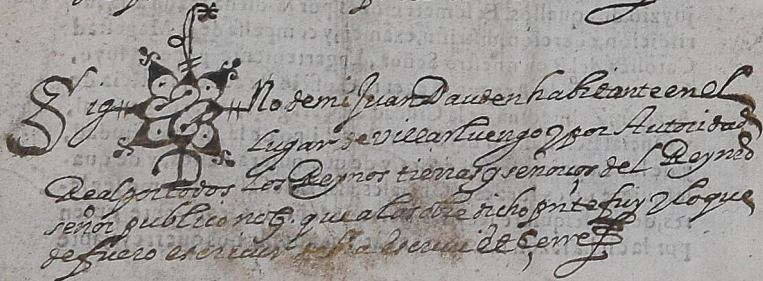 Sig No de mi Juan Dauden habitante en el
lugar de Villarluengo y por Autoridad
Real por todos los Reynos tierras y señorios del Rey nro
señor publico notº. que a lo sobre dicho pnte fuy y lo que
de fuero escriuir escriui et cerre